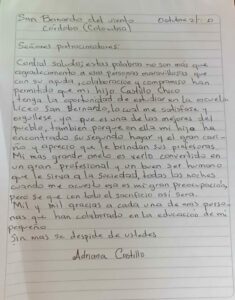 San Bernardo del viento Octubre 2/
Córdoba (Colombia)
Señores patrocinadores:
Cordial saludo; estas palabras no son más que
agradecimiento a esas personas maravillosas que
con su ayuda, colaboración y compromiso han
permitido que mi hijo Castillo Chico
tenga la oportunidad de estudiar en la escuela
liceo San Bernardo, lo cual me satisface y
orgullese, ya que es una de las mejores del
pueblo, tambien porque en ella mi hijo ha
encontrado su segundo hogar y el gran cari-
ño y aprecio que le brindan sus profesoras.
Mi mas grande anelo es verlo convertido en
un gran profesional y un buen ser humano
que le sirva a la sociedad, todas las noches
cuando me acuesto esa es mi gran preocupación,
pero se que con todo el sacrificio asi sera.
Mil y mil gracias a cada una de esas perso-
nas que han colaborado en la educacion de mi
pequeño.
Sin mas se despide de ustedes
Adriana Castillo